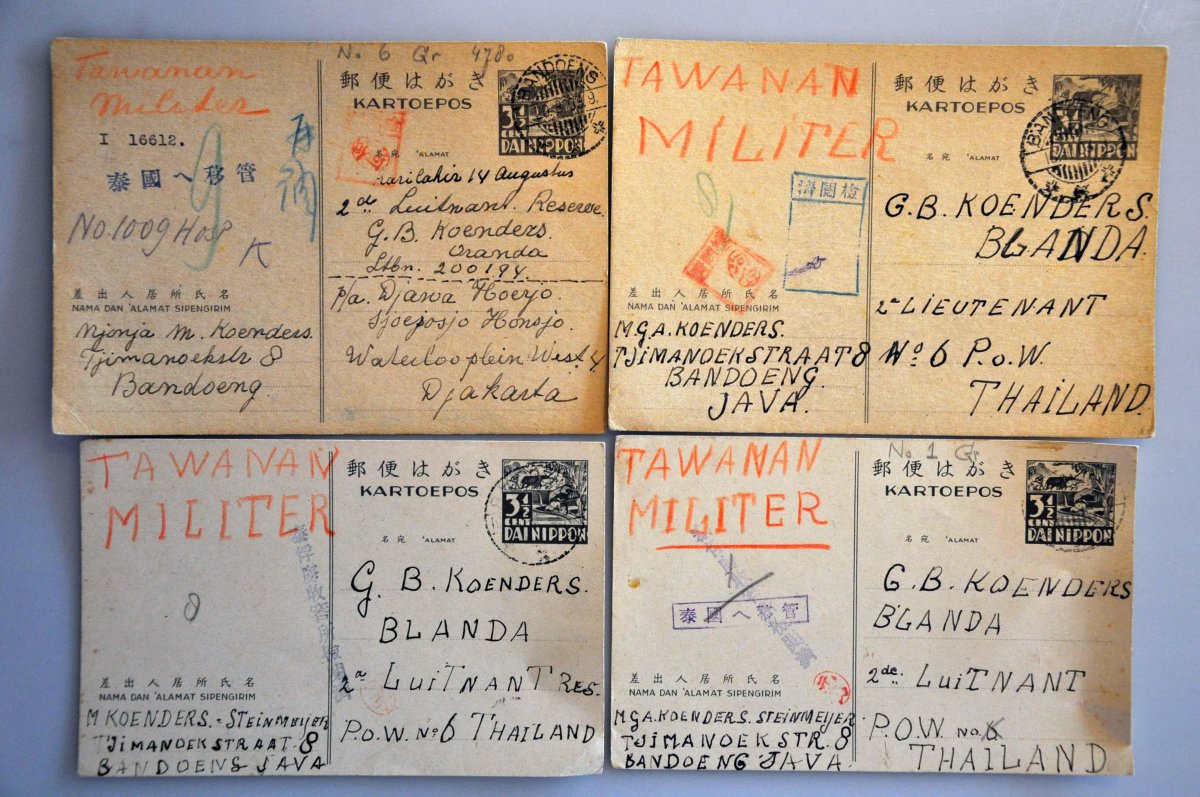 Tawanan
Militer
I 16612.
泰國へ移管
No. 1009 Hosp
K
差出人居所氏名
NAMA DAN 'ALAMAT SIPENGIRIM
Njonja M. Koenders.
Tjimanoekstr 8
Bandoeng.
No 6 Gr 4780
郵便はがき
KARTOEPOS
3½
CENT
DAI NIPPON
BANDOENG
名宛 'ALAMAT
harilahir 14 Augustus
2de Luitnant Reserve
G. B. Koenders.
Oranda
Stbn. 200194.
p/a. Djawa Hoerjo.
Sjoeposjo Honsjo.
Waterlooplein West 4
Djakarta
TAWANAN
MILITER
8
検閲済
差出人居所氏名
NAMA DAN 'ALAMAT SIPENGIRIM
M.G.A. KOENDERS.
TJIMANOEKSTRAAT 8
BANDOENG.
JAVA.
郵便はがき
KARTOEPOS
DAI NIPPON
名宛 'ALAMAT
G.B. KOENDERS.
BLANDA.
2e LIEUTENANT
No 6 P.o.W.
THAILAND.
TAWANAN
MILITER
8
差出人居所氏名
NAMA DAN 'ALAMAT SIPENGIRIM
M KOENDERS.-STEINMEIJER
TJIMANOEKSTRAAT. 8
BANDOENG JAVA
郵便はがき
KARTOEPOS
3½
CENT
DAI NIPPON
名宛 'ALAMAT
G. B. KOENDERS.
BLANDA
2e LUITNANT RES.
P.O.W. No 6 THAILAND
TAWANAN
MILITER
泰國へ移管
差出人居所氏名
NAMA DAN 'ALAMAT SIPENGIRIM
M.G.A. KOENDERS. STEINMEIJER
TJIMANOEKSTR. 8
BANDOENG JAVA.
No 1 Gr
郵便はがき
KARTOEPOS
3½
CENT
DAI NIPPON
名宛 'ALAMAT
G. B. KOENDERS
BLANDA
2de: LUITNANT
P.O.W. No. 6
THAILAND